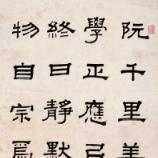 阮千里美
學正應
終日靜默
物自宗焉